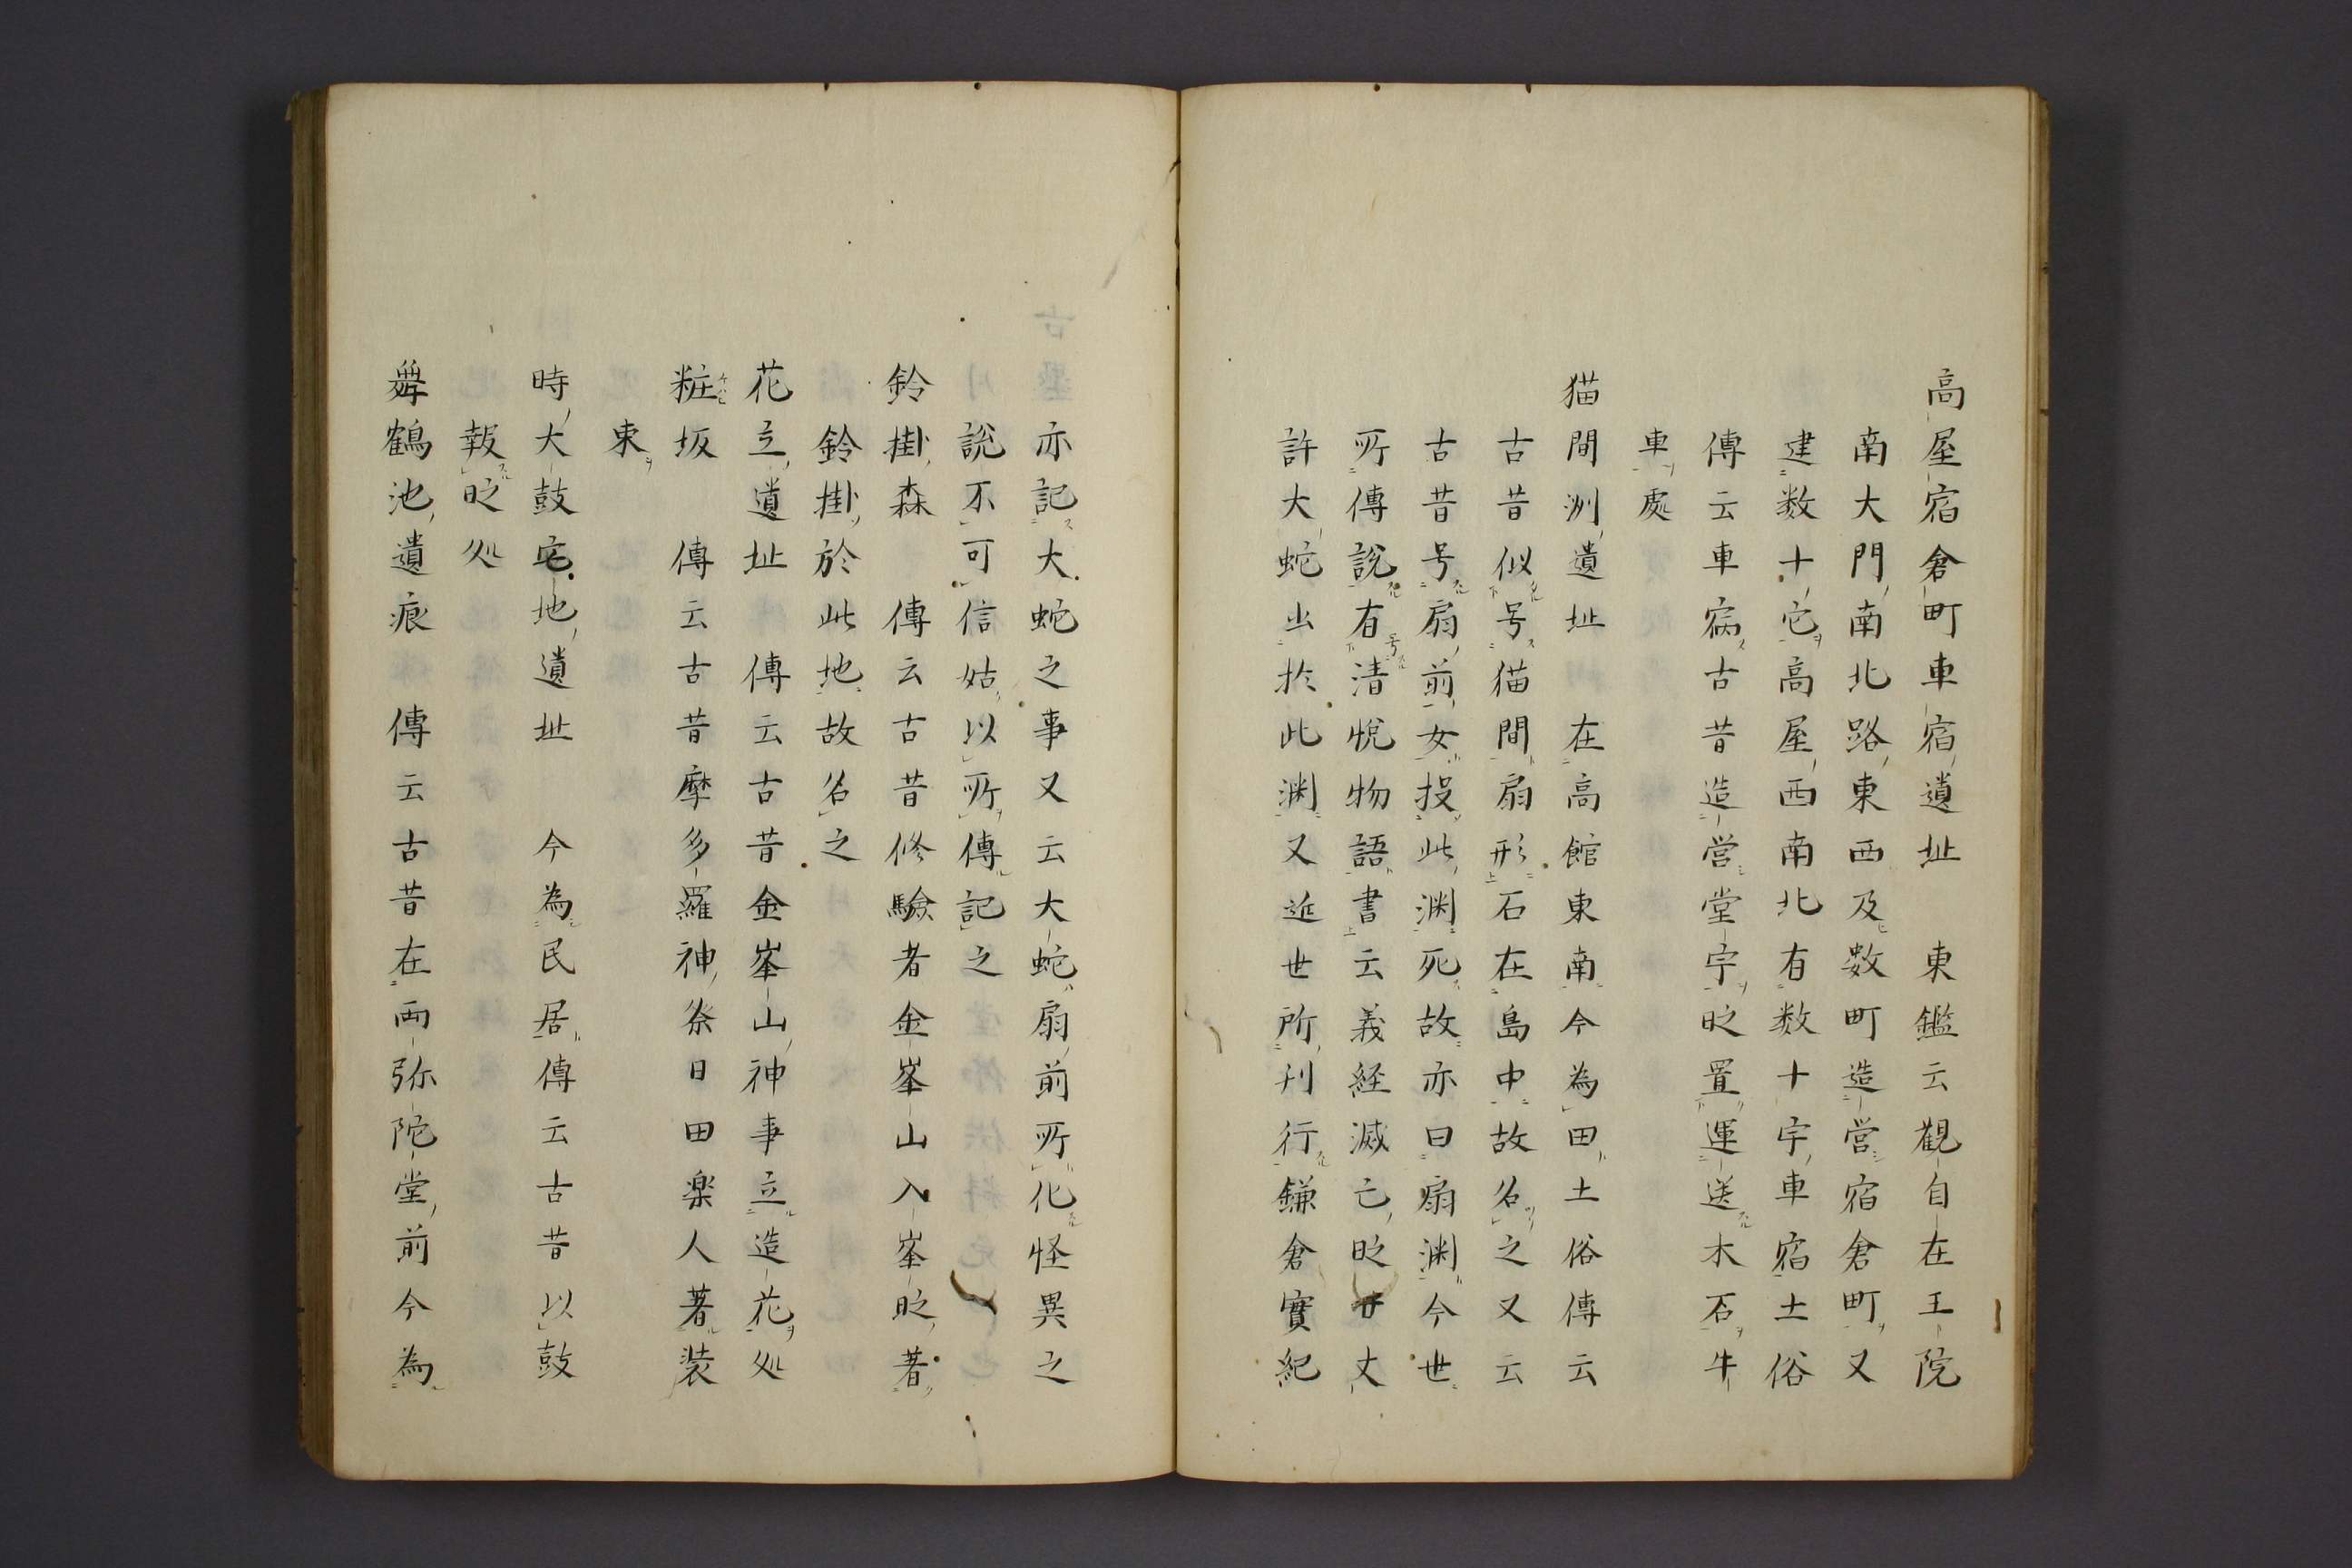 高屋宿倉町車宿遺址　東鑑云觀自在王院
南大門南北路東西及数町造営宿倉町又
建数十宅高屋西南北有数十宇車宿土俗
傳云車病古昔造営堂宇時置運送木石牛
車處
猫間渕遺址　在高館東南今為田土俗傳云
古昔似号猫間扇形石在島中故名之又云
古昔号扇前女投此渕死故亦曰扇渕今世
所傳説有清悦物語書云義経滅亡時廿丈
許大蛇出於此渕又近世所刊行鎌倉實紀
亦記大蛇之事又云大蛇扇前所化怪異之
説不可信姑以所傳記之
鈴掛森　傳云古昔修驗者金峯山入峯時著
鈴掛於此地故名之
花立遺址　傳云古昔金峯山神事立造花処
粧坂　傳云古昔摩多羅神祭日田楽人著装
束
時大鼓宅地遺址　今為民居傳云古昔以鼓
報時処
舞鶴池遺痕　傳云古昔在両弥陀堂前今為